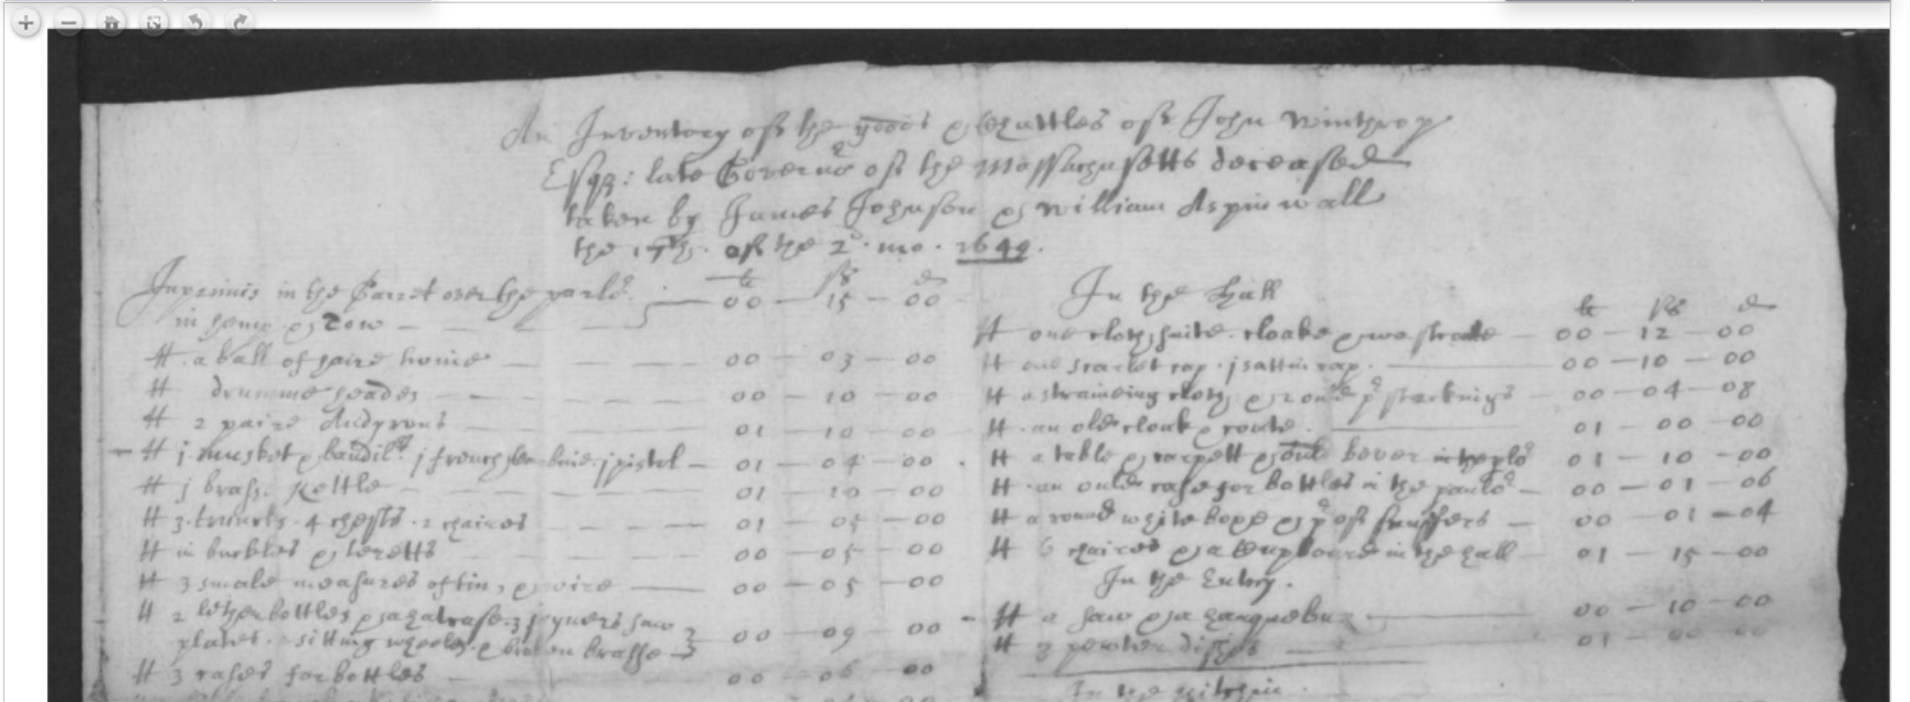 An Inventory off the goods & Chattles off John Winthrop
Esqr: late Governor off the Massachusetts deceased
taken by James Johnson & William Aspinwall
the 17th. off the 2o. mo. 1649.
Inprimis in the Garret over the parlor lb s d
in hemp & tow — 00 — 15 — 00
It. a ball of paire twine — 00 — 03 — 00
It drumme heades — 00 — 10 — 00
It 2 paire Andyrons — 01 — 10 — 00
It j. musket & bandilrs j french j pistol — 01 — 04 — 00
It j brass. Kettle — 01 — 10 — 00
It 3. trunks. 4 chests. 2 chaires — 01 — 05 — 00
It in buckles & — 00 — 05 — 00
It 3 smale measures of tin, & wire — 00 — 05 — 00
It 2 lether bottles & a hatcase. 3 joyners saw
plates. sitting wheeles. & broken brasse — 00 — 09 — 00
It 3 cases for bottles — 00 — 06 — 00
In the Hall
lb s d
It one cloth suite. cloake & wastcoate — 00 — 12 — 00
It one scarlet cap. j sattin cap. — 00 — 10 — 00
It a straineing cloth & 2 ould pr stockings — 00 — 04 — 08
It. an old cloak & coate. — 01 — 00 — 00
It a table & carpett & ould cover in the plor — 01 — 10 — 00
It. an ould case for bottles in the parlor — 00 — 01 — 06
It a round white boxe & pr off snuffers — 00 — 01 — 04
It 6 chaires & a cupboard in the hall — 01 — 15 — 00
In the Entry.
It a saw & a harquebuz — 00 — 10 — 00
It 3 pewter dishes — 01 — 00 — 00
In the Kitchin